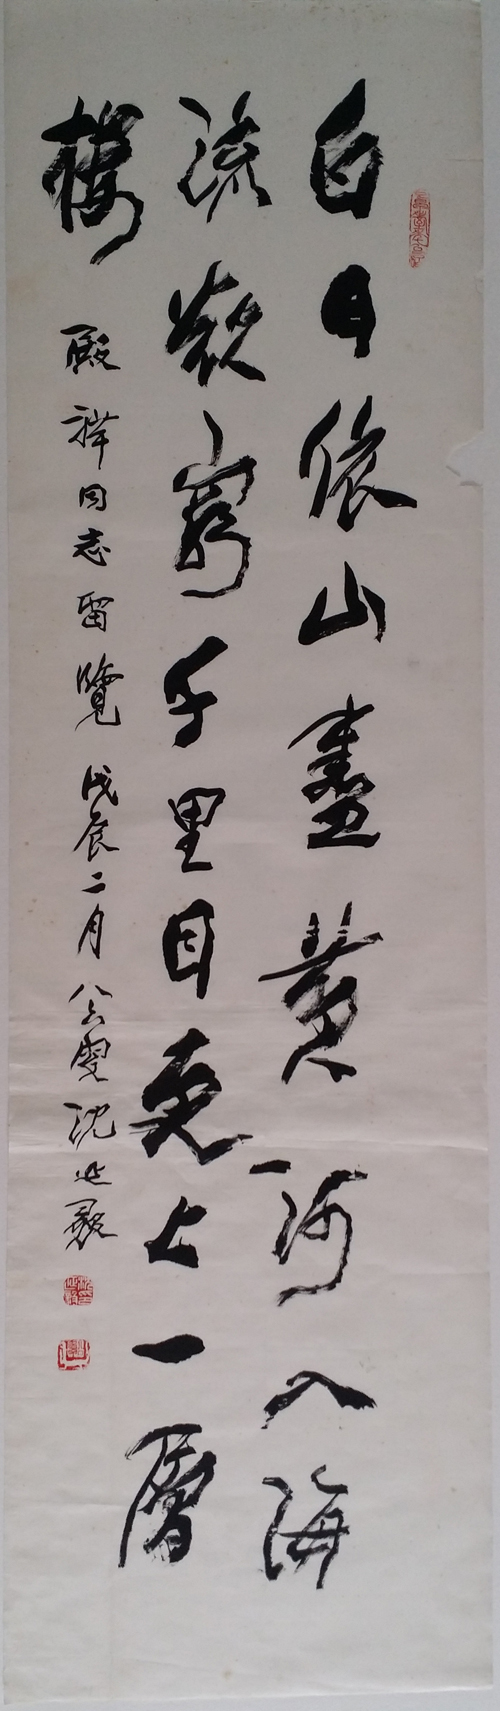 白日依山盡黄河入海
流欲窮千里目更上一層
樓 殿祥同志留覽 戊辰二月 八六叟 沈延毅